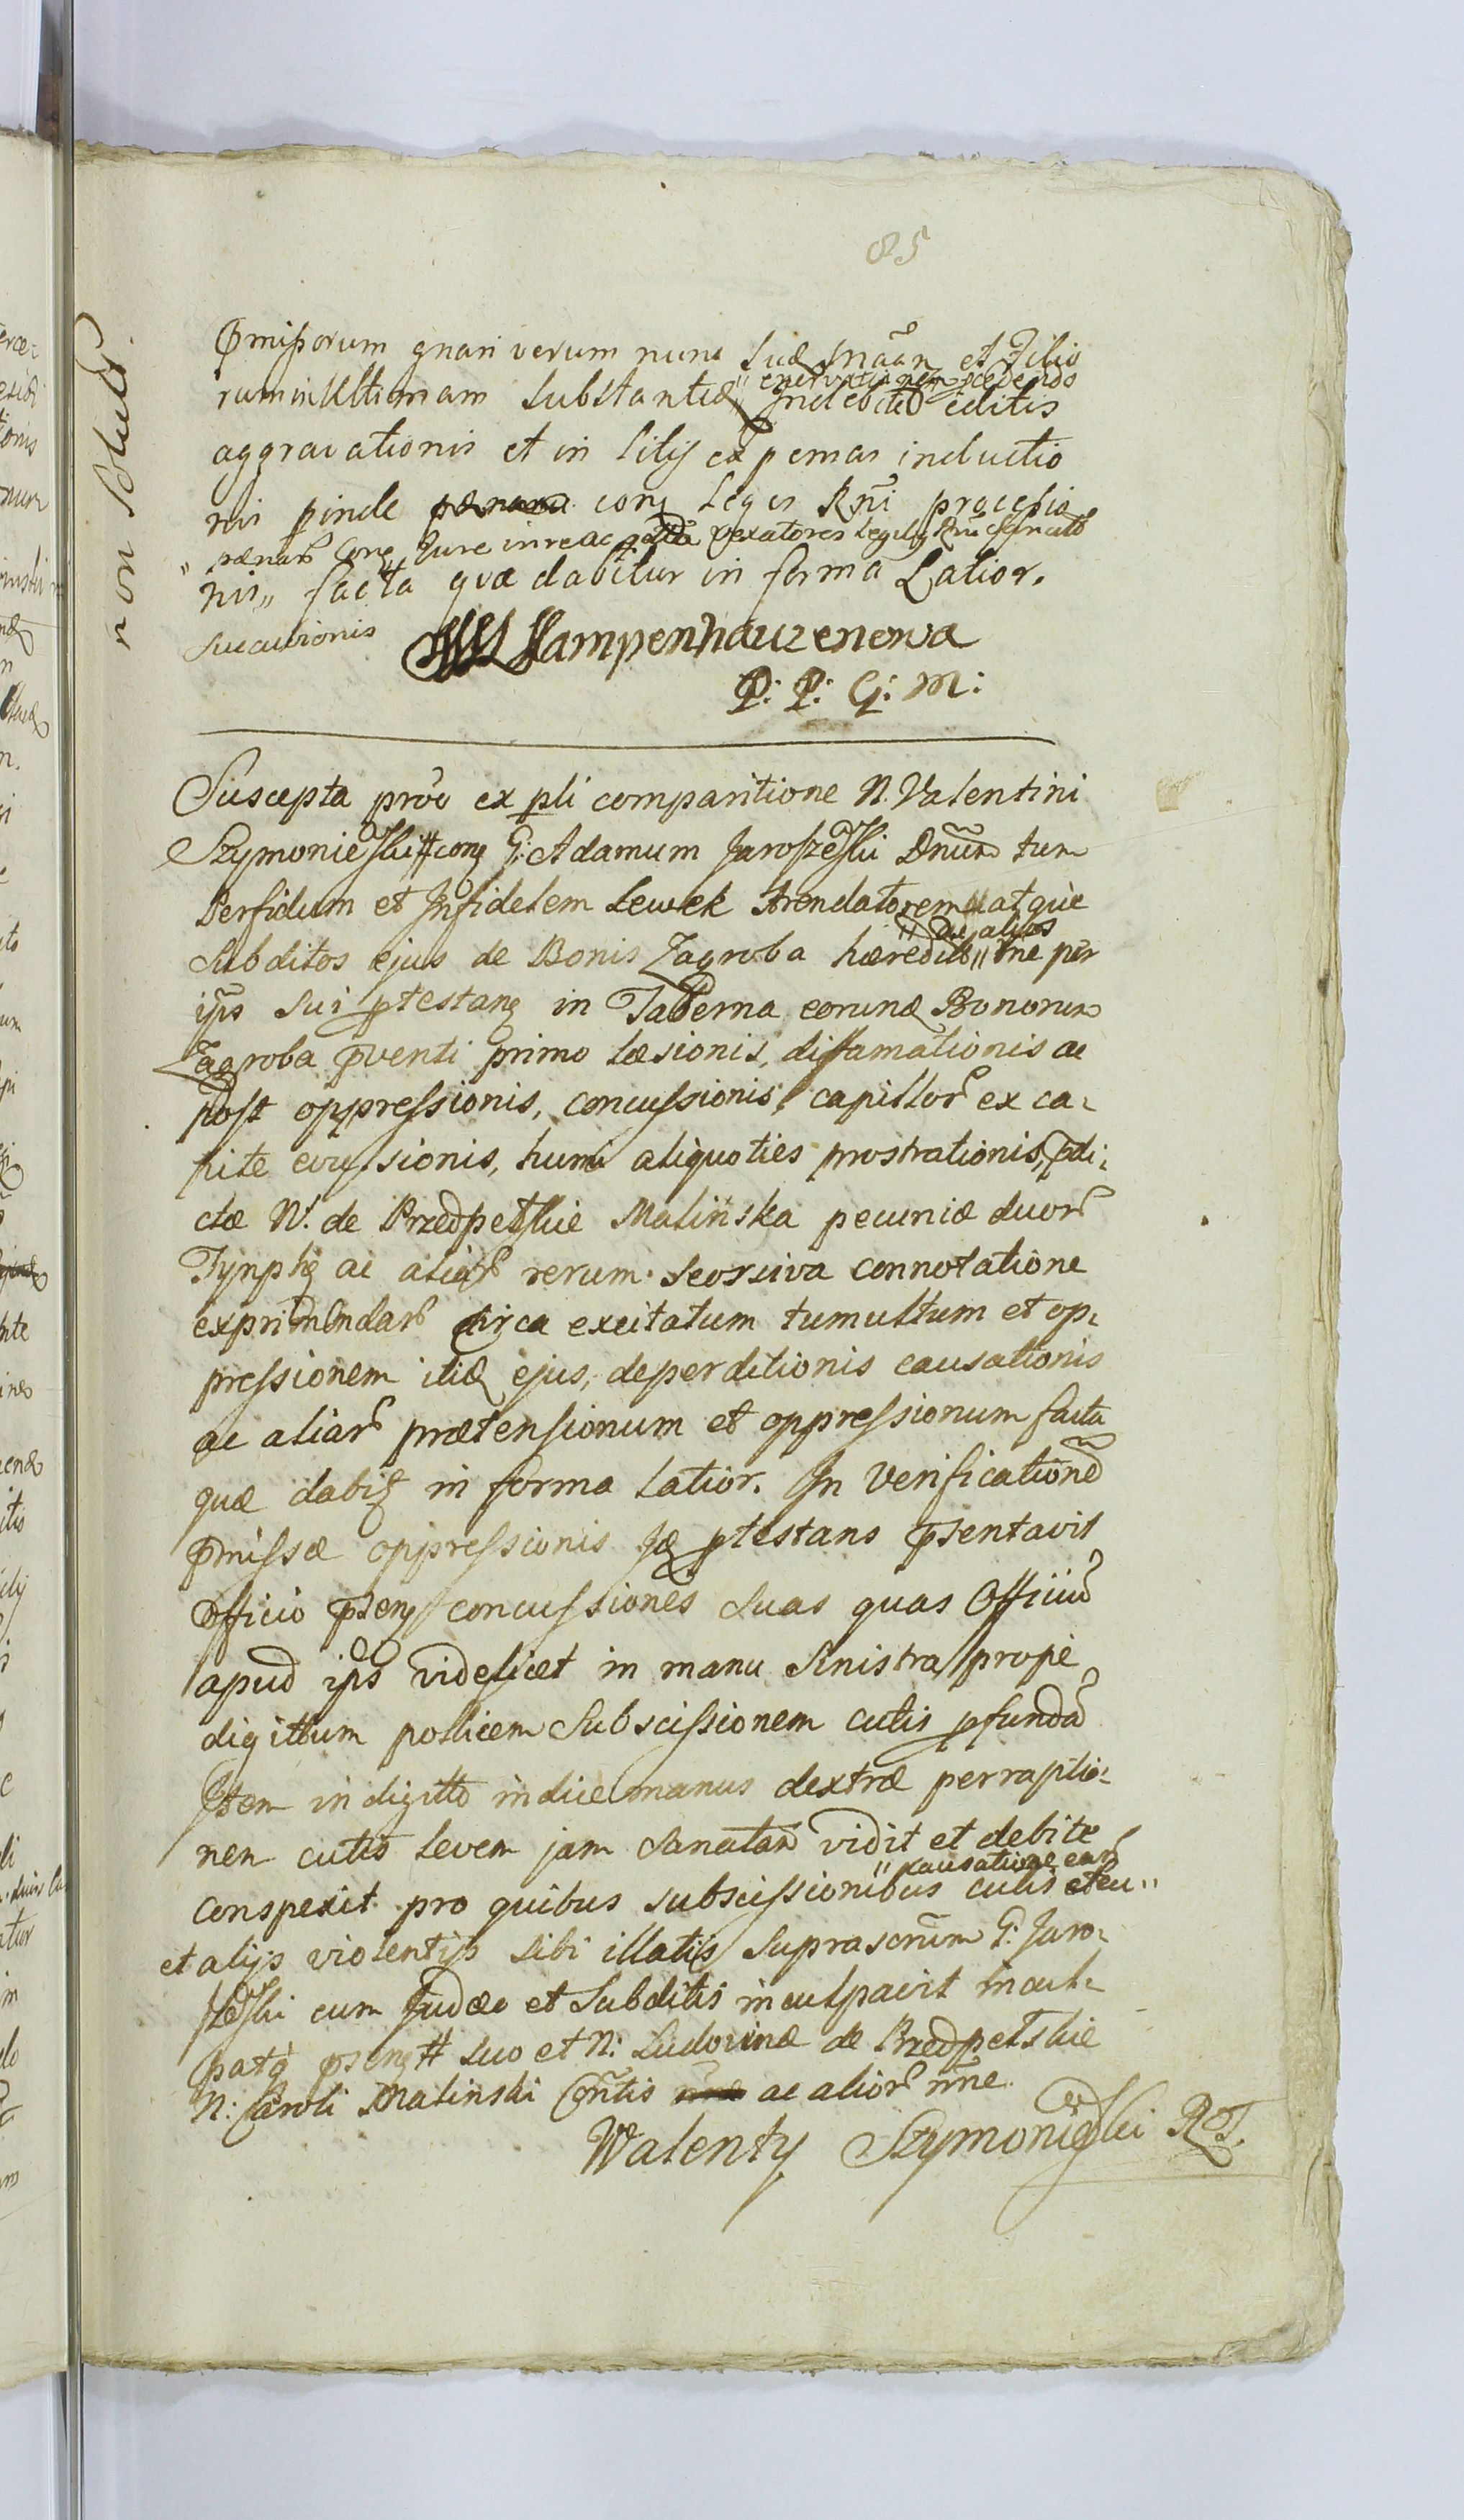 85
non solut
Pmissorum gnari verum nunc suæ et Filio
rum in Ultimam substantiæ " Indebite editis
" enervationem
aggravationis et in litis expensas inductio
nis pinde conq Leges Rni processio
" pænar conq Jure in re ac vexatores
nis " facta quæ dabitur in forma Latior.
succubionis
Kampenhauzenowa
P: P: G: M:
Suscepta prov ex pli comparitione N. Valentini
Szymonieski # conq G: Adamum Jaroszeski Dnum tum
Perfidum et Infidelem Lewek Arendatorem atque
" ac alios
subditos ejus de Bonis Zagroba hæredit " rne per
ips sui ptestanq in Taberna eorunq Bonorum
Zagroba pventi primo læsionis, diffamationis ac
post oppressionis, concussionis, capillor ex ca-
pite evulsionis, humi aliquoties prostrationis, pdi-
ctæ N. de Przedpelskie Malinska pecuniæ duor
Tynph ac aliar rerum seorsiva connotatione
exprimendar circa excitatum tumultum et op-
pressionem itiq ejus, deperditionis causationis
ac aliar prætensionum et oppressionum facta
quæ dabit in forma latior. In Verificatione
pmissæ oppressionis Iq ptestans psentavit
officio psenq concussiones suas quas Officiu
apud ips videlicet in manu sinistra prope
digittum pollicem subscissionem cutis pfunda
Item in digitto indice manus dextræ perraptio-
nem cutis levem jam sanatam vidit et debite
" causatione ear
conspexit pro quibus subscissionibus cutis "
et alijs violentijs sibi illatis suprascrum G: Jaro-
szeski cum Judæo et subditis inculpavit incul-
patq psenq # suo et N: Ludovinæ de Przedpelskie
N: Caroli Malinski Contis ac alior nne
Walenty Szymonieski RT.